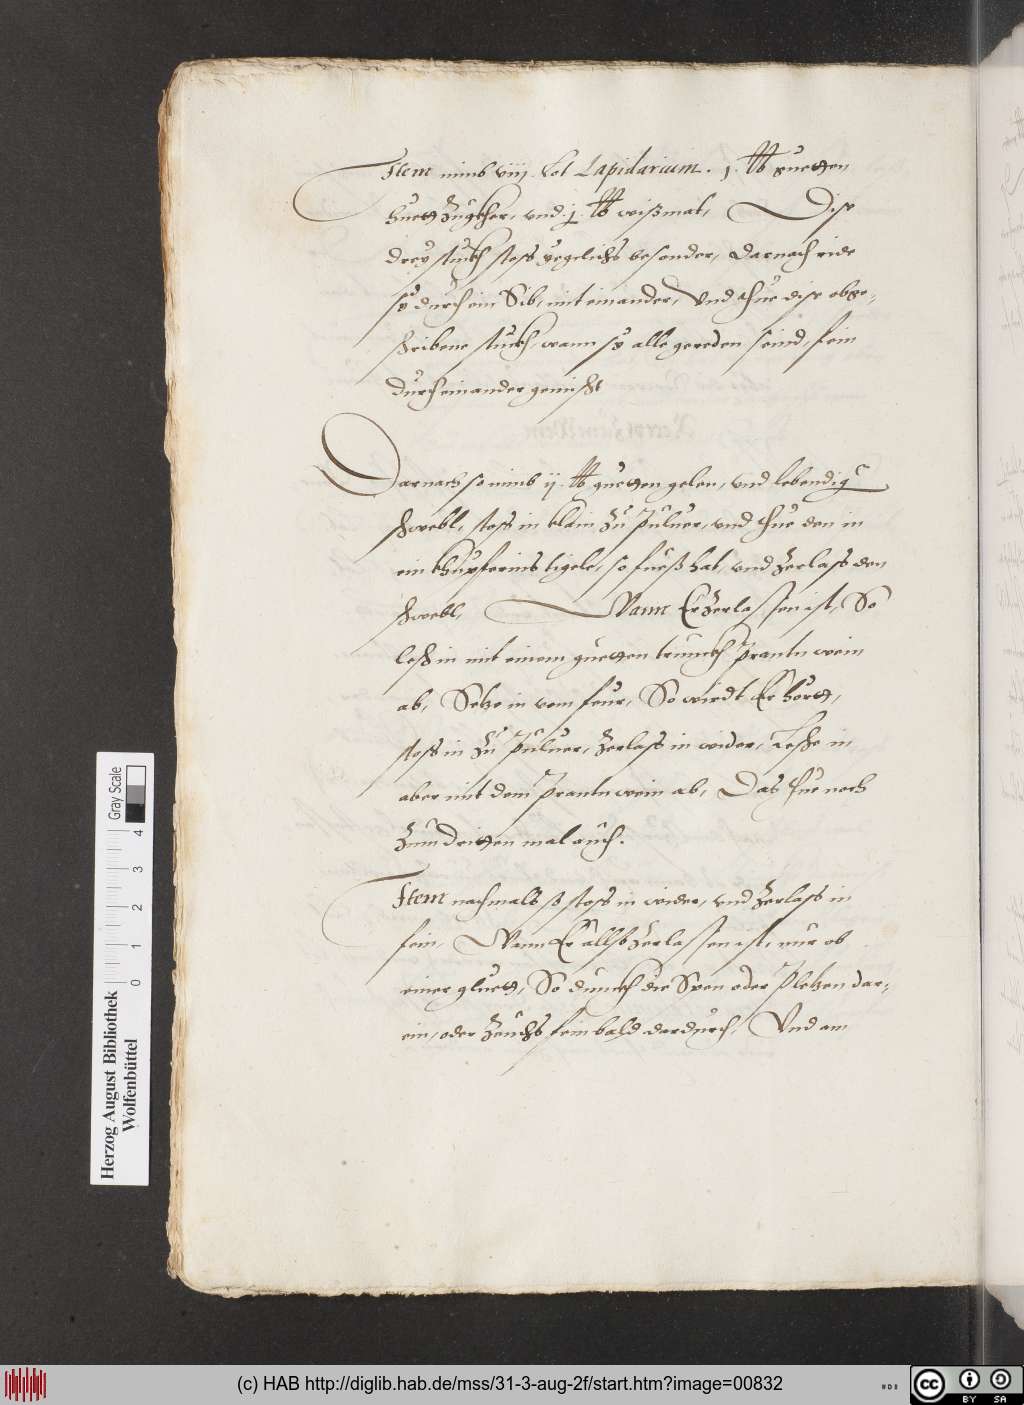 Item nimb viij. Lot Lapidarium. j. ℔ guetten
huett Zugkher, vnd j. ℔ wißmat, Dise
drey stuckh stoss yegelichs besonder, darnach ride
sy durch ein Sib, mit einander, Vnd thue dise obge-
schribene stuckh, wann sy alle gereden seind, fein
durcheinander gemischt
Darnach so nimb ij. ℔ guetten gelen, vnd lebendigen
schwebl, stoss in klain zu Puluer, vnd thue den in
ein khupferins tigele, so fueß hat, vnd zerlass den
schwebl, Wann Er zerlassen ist, So
lesch in mit einem guetten trunckh Prantn wein
ab, Setze in vom feur, So wirdt Er hertt,
stoss in zu Puluer, zerlass in wider, Lesche in
aber mit dem Prantn wein ab, Das thue noch
zum dritten mal auch.
Item nachmals so stoss in wider, vnd zerlass in
fein, Wann Er allso zerlassen ist, nur ob
einer gluett, So dunckh die Spen oder Pletzen dar-
ein, oder zeuchs fein bald dardurch, Vnd am
Herzog August Bibliothek
Wolfenbüttel
0 1 2 3 4
Gray Scale
(c) HAB http://diglib.hab.de/mss/31-3-aug-2f/start.htm?image=00832
HAB
cc BY SA